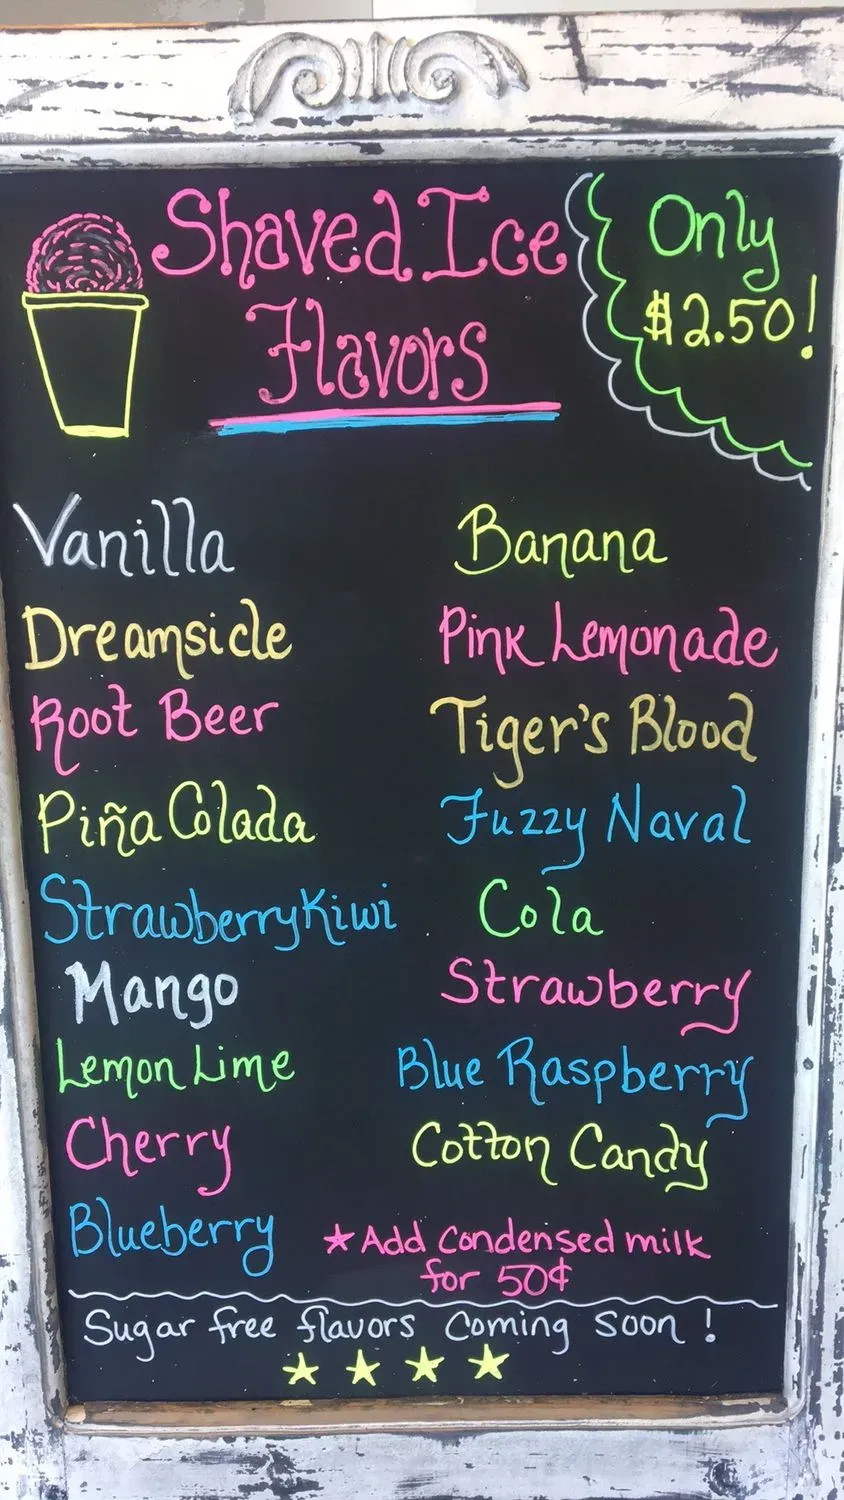 Shaved Ice
Flavors
Only
$2.50!
Vanilla
Dreamsicle
Root Beer
Piña Colada
Strawberry Kiwi
Mango
Lemon Lime
Cherry
Blueberry
Banana
Pink Lemonade
Tiger's Blood
Fuzzy Naval
Cola
Strawberry
Blue Raspberry
Cotton Candy
★Add condensed milk
for 50¢
Sugar free flavors coming soon!